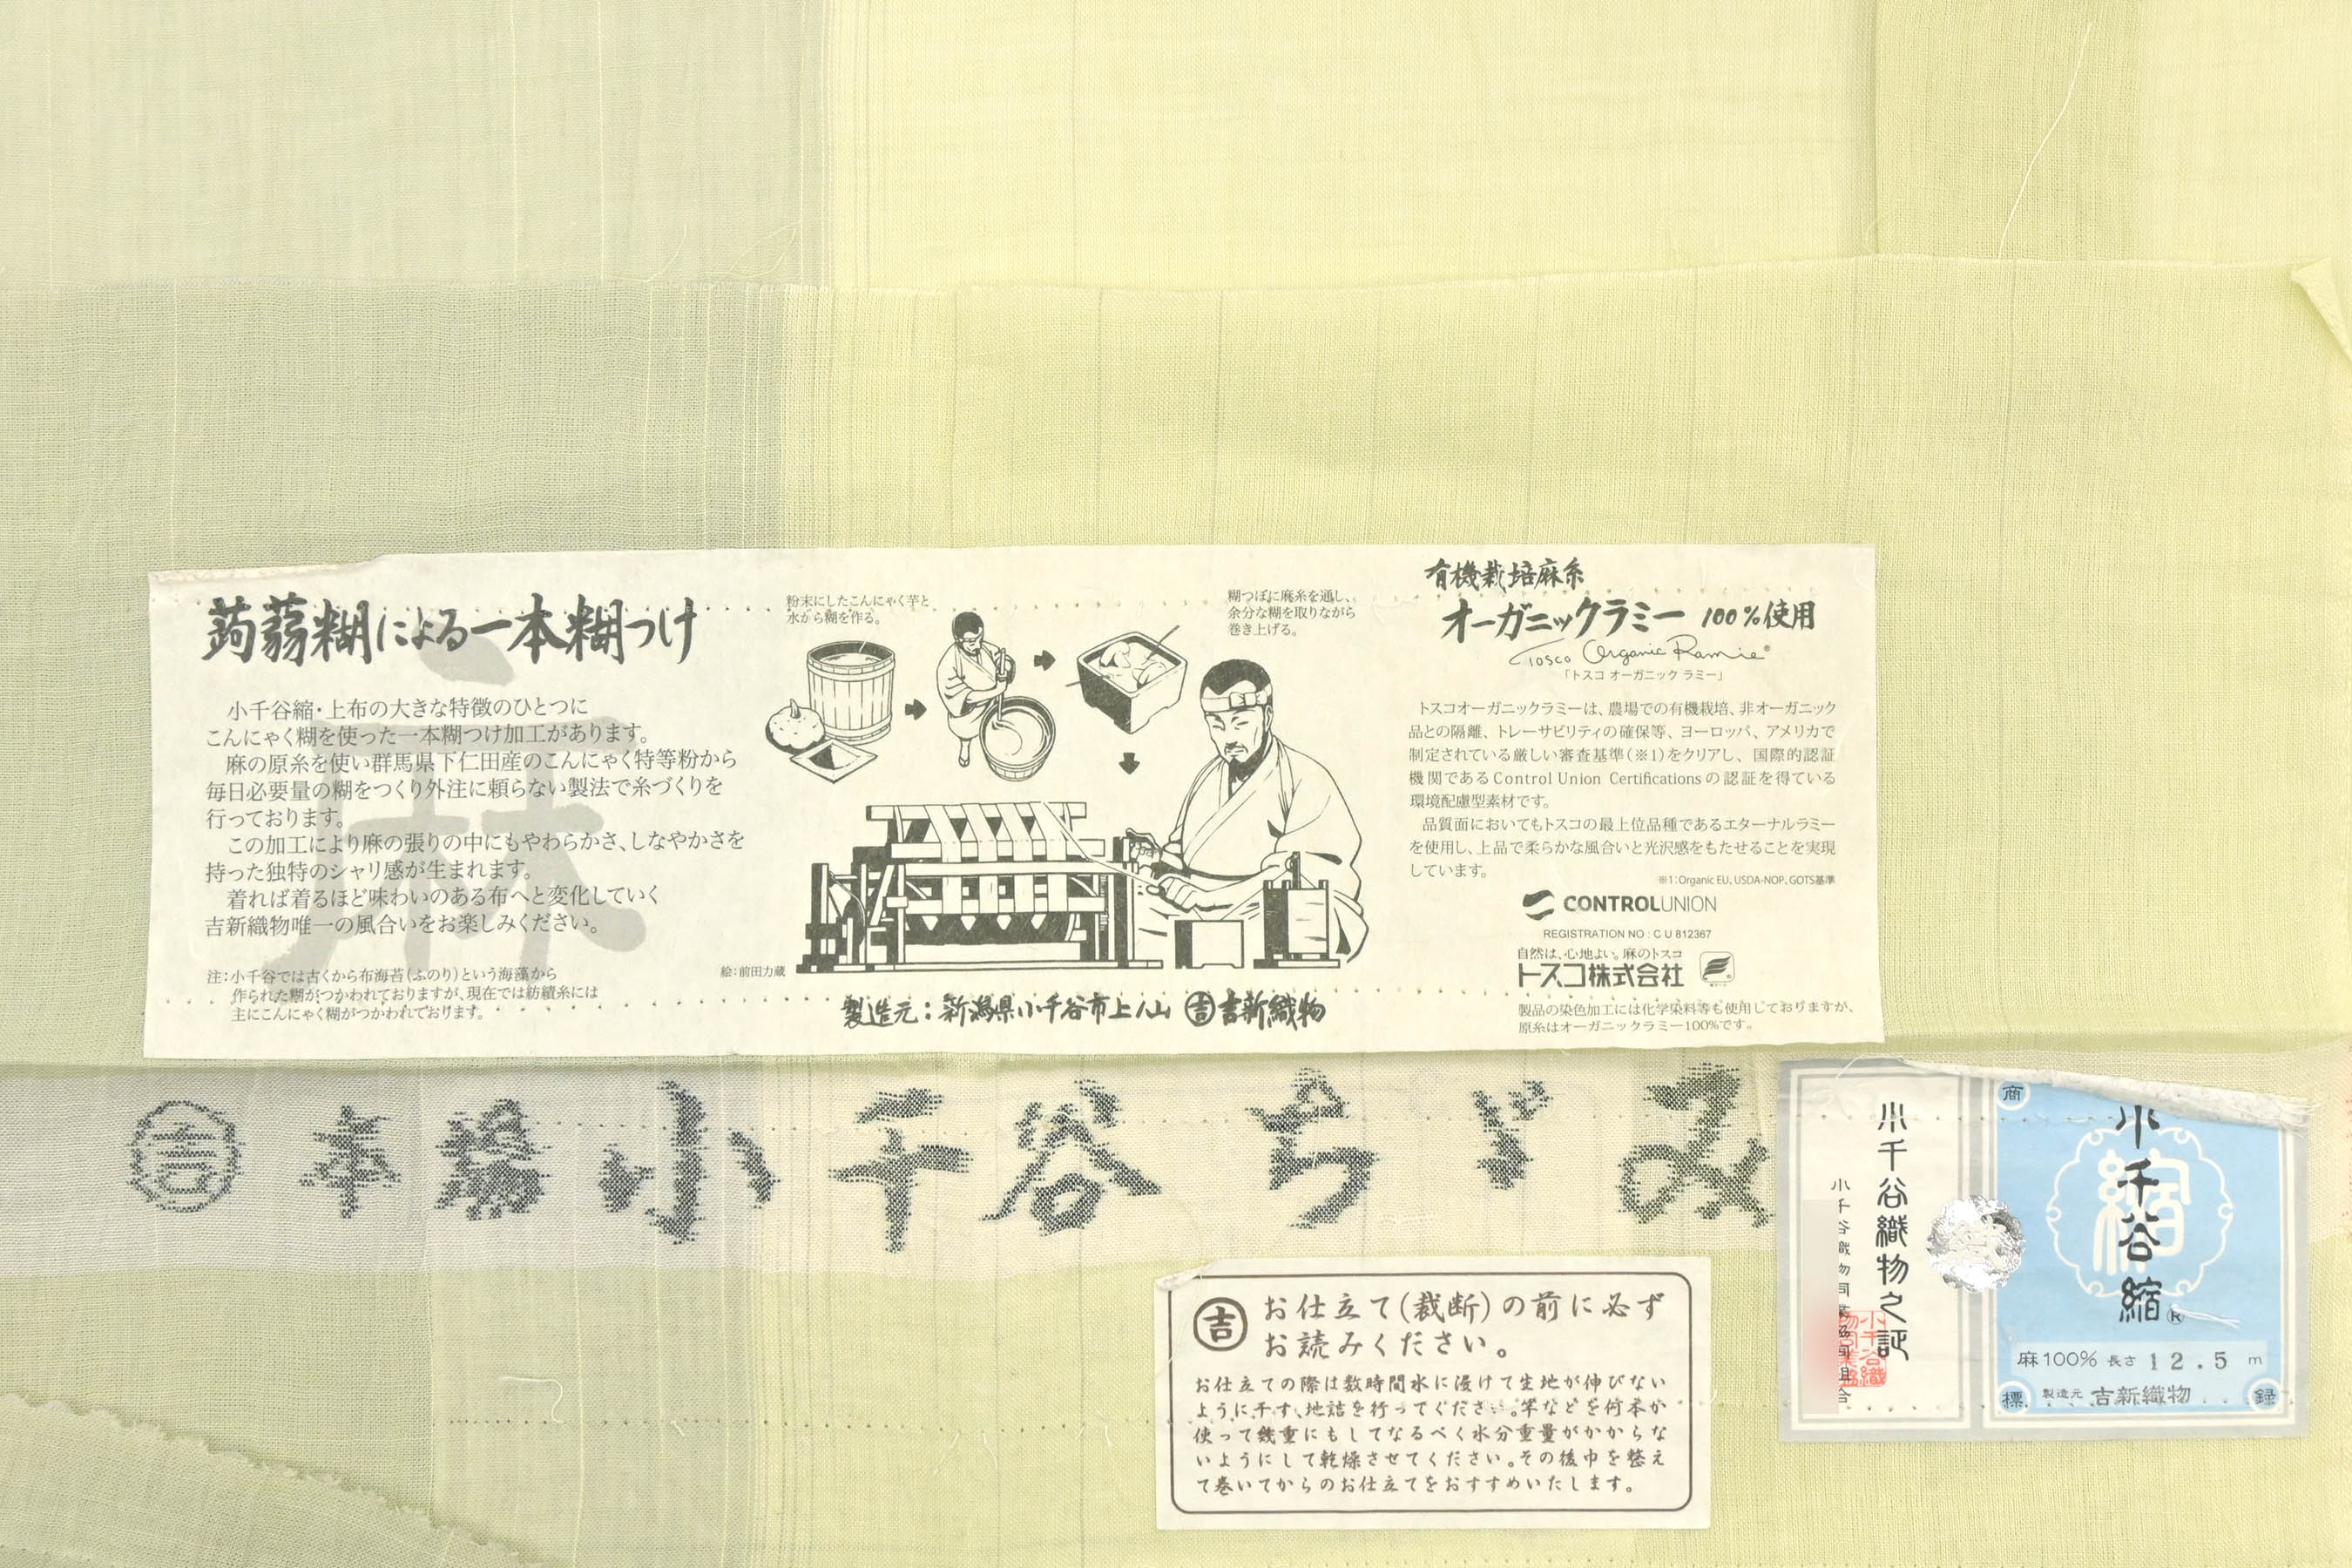 蒟蒻糊による一本糊つけ
小千谷縮・上布の大きな特徴のひとつに
こんにゃく糊を使った一本糊つけ加工があります。
麻の原糸を使い群馬県下仁田産のこんにゃく特等粉から
毎日必要量の糊をつくり外注に頼らない製法で糸づくりを
行っております。
この加工により麻の張りの中にもやわらかさ、しなやかさを
持った独特のシャリ感が生まれます。
着れば着るほど味わいのある布へと変化していく
吉新織物唯一の風合いをお楽しみください。
麻
注:小千谷では古くから布海苔(ふのり)という海藻から
作られた糊がつかわれておりますが、現在では紡績糸には
主にこんにゃく糊がつかわれております。
粉末にしたこんにゃく芋と
水から糊を作る。
糊つぼに麻糸を通し、
余分な糊を取りながら
巻き上げる。
絵:前田力蔵
製造元:新潟県小千谷市上ノ山 吉 吉新織物
有機栽培麻糸
オーガニックラミー 100%使用
Tosco Organic Ramie®
「トスコ オーガニック ラミー」
トスコオーガニックラミーは、農場での有機栽培、非オーガニック
品との隔離、トレーサビリティの確保等、ヨーロッパ、アメリカで
制定されている厳しい審査基準(※1)をクリアし、国際的認証
機関であるControl Union Certificationsの認証を得ている
環境配慮型素材です。
品質面においてもトスコの最上位品種であるエターナルラミー
を使用し、上品で柔らかな風合いと光沢感をもたせることを実現
しています。
※1:Organic EU、USDA-NOP、GOTS基準
CONTROLUNION
REGISTRATION NO : C U 812367
自然は、心地よい。麻のトスコ
トスコ株式会社
製品の染色加工には化学染料等も使用しておりますが、
原糸はオーガニックラミー100%です。
吉 本場小千谷ちゞみ
吉 お仕立て(裁断)の前に必ず
お読みください。
お仕立ての際は数時間水に浸けて生地が伸びない
ように干す、地詰を行ってください。竿などを何本か
使って幾重にもしてなるべく水分重量がかからな
いようにして乾燥させてください。その後巾を整え
て巻いてからのお仕立てをおすすめいたします。
小千谷織物之証
小千谷織物同業協同組合
商標
登録
縮
小千谷縮®
麻100% 長さ 12.5 m
製造元 吉新織物